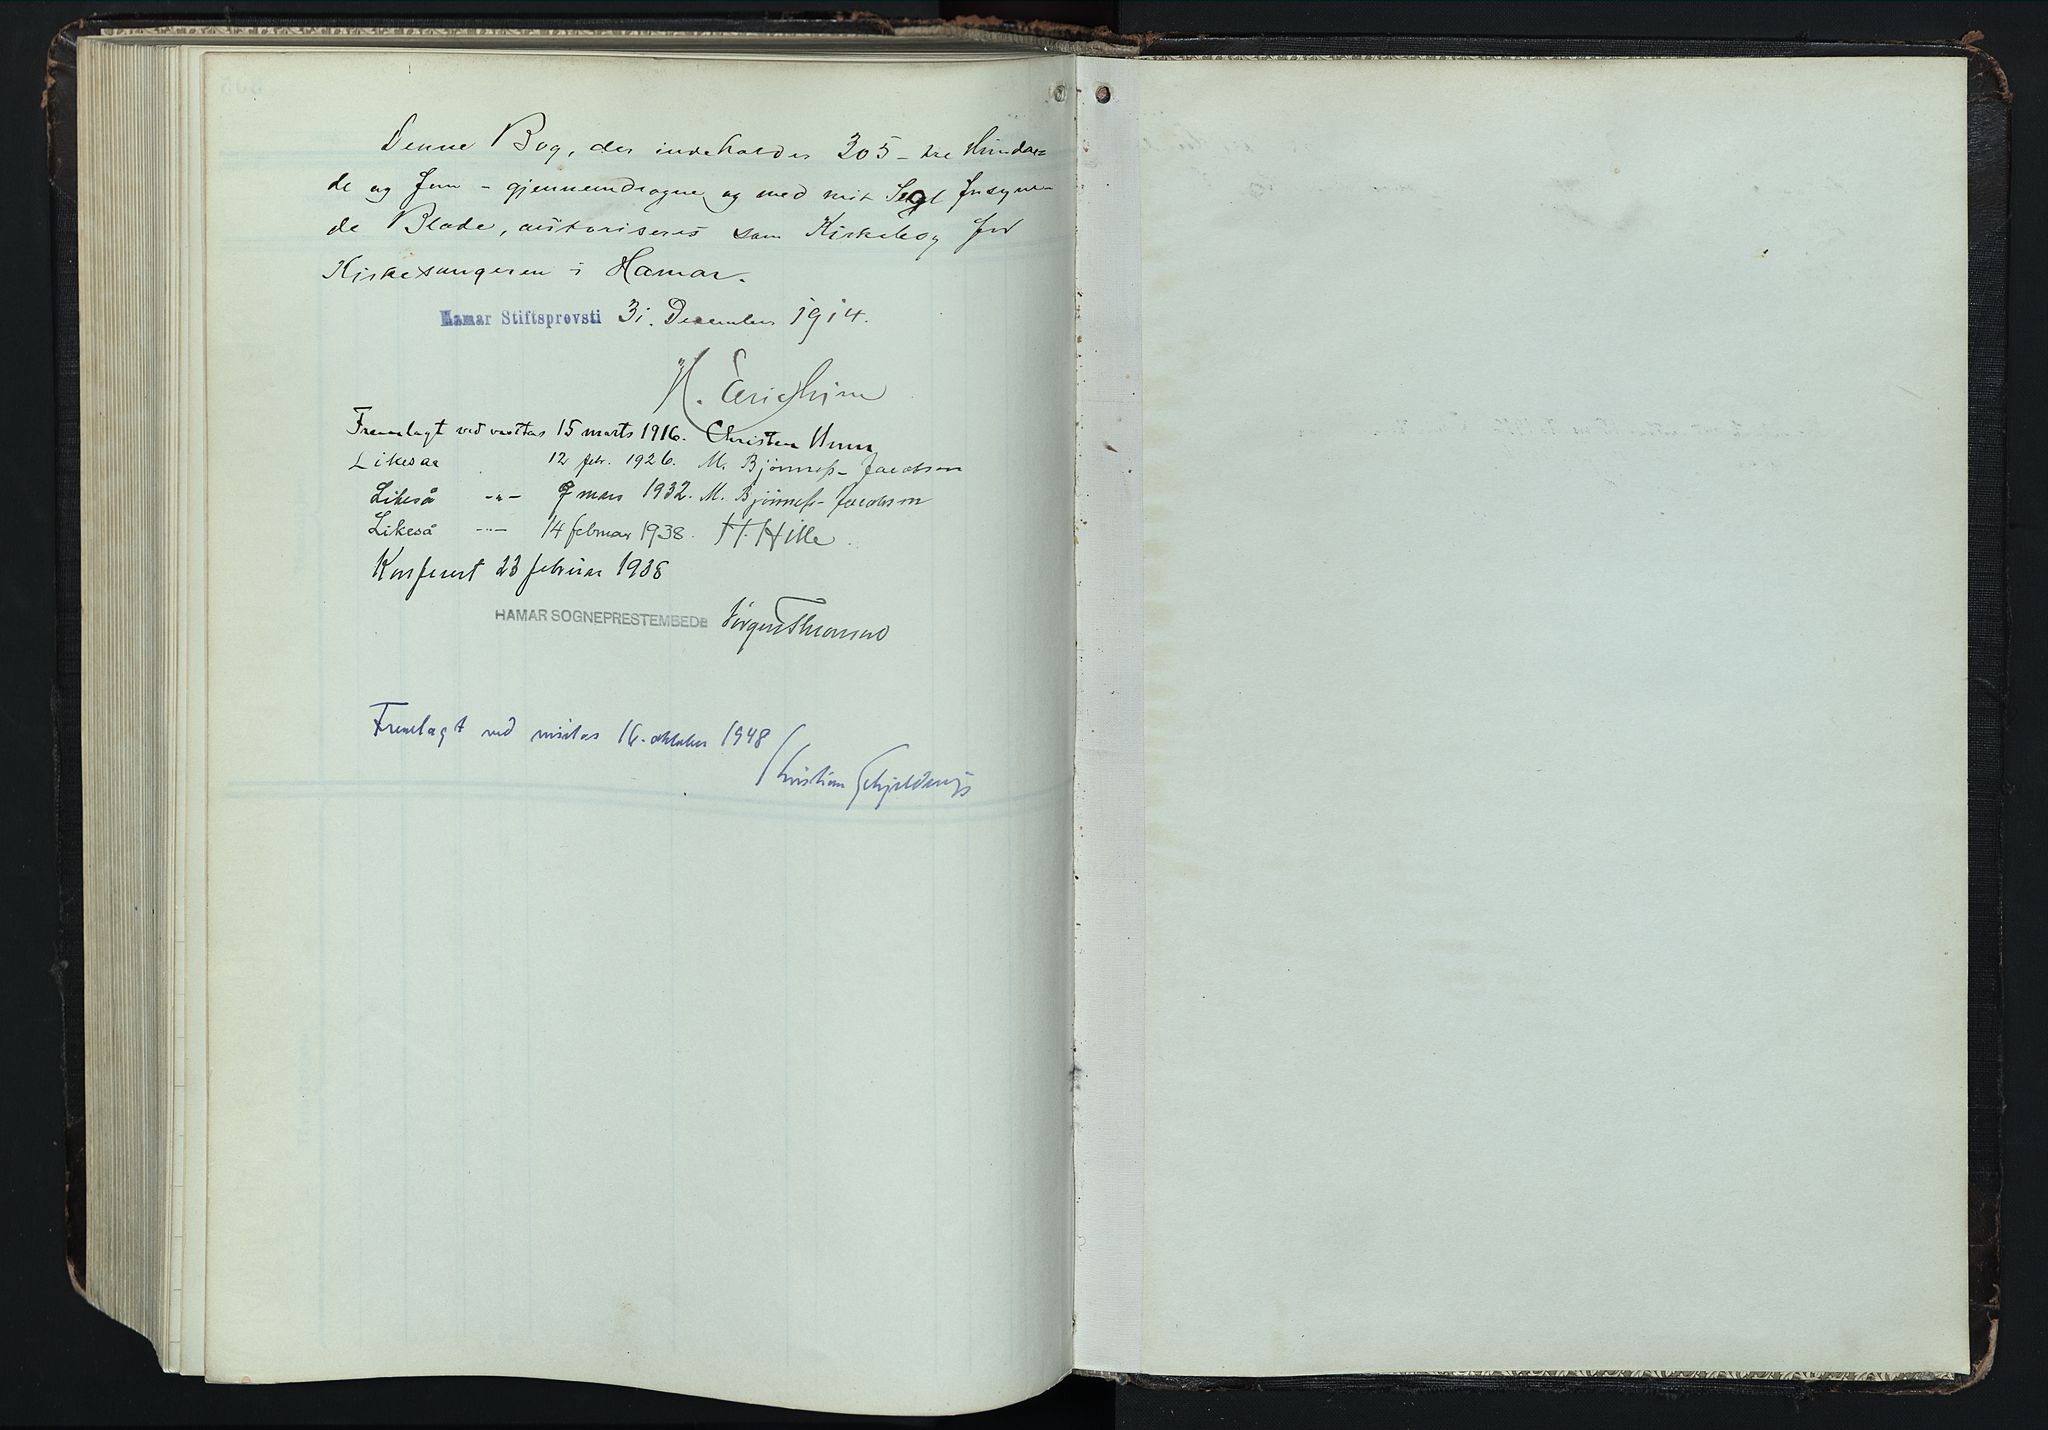 Denne Bog, der indeholder 305 - tre Hundre=
de og fem - gjennemdragne og med mit Segl forsyne-
de Blade, autoriseres som Kirkebog for
Kirkesangeren i Hamar.
Hamar Stiftsprovsti 31. December 1914.
H.
Fremlagt ved visitas 15 marts 1916. Christen
Likesaa 12 febr. 1926. M. Bjønness-Jacobsen
Likeså -"- 7 mars 1932. M. Bjønness-Jacobsen
Likeså -"- 14 februar 1938. H. Hille.
Konferert 23 februar 1938
HAMAR SOGNEPRESTEMBEDE Jørgen
Fremlagt ved visitas 16. oktober 1948
Kristian Schjelderup